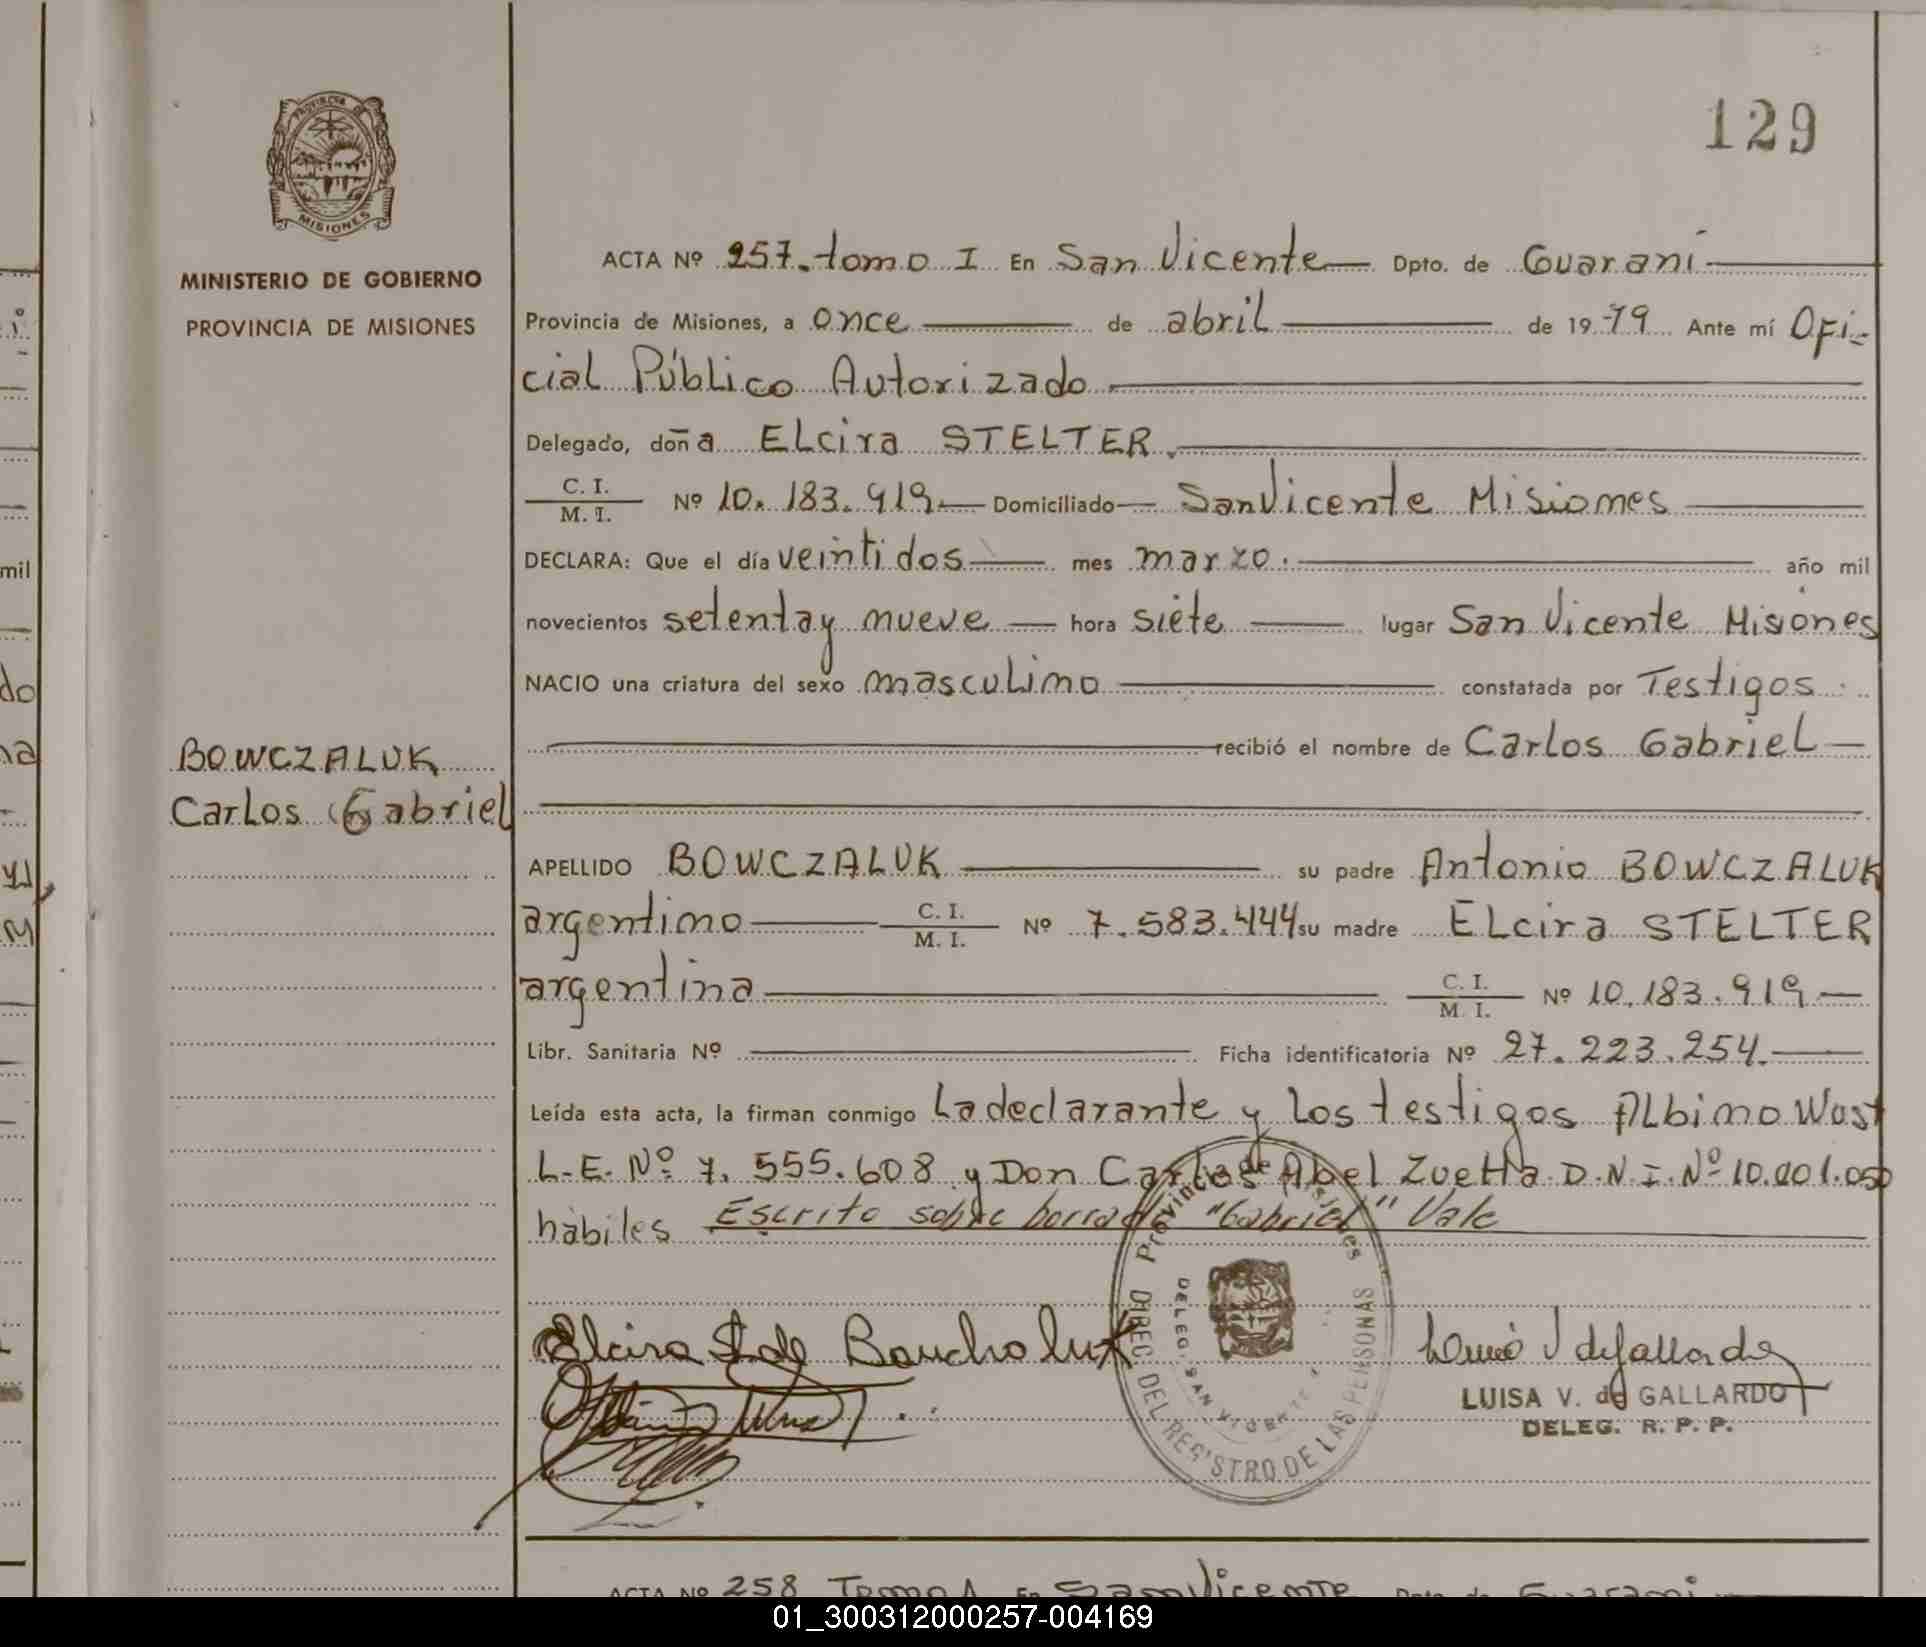 129
PROVINCIA DE
MISIONES
MINISTERIO DE GOBIERNO
PROVINCIA DE MISIONES
BOWCZALUK
Carlos Gabriel
ACTA Nº 257. tomo I En San Vicente Dpto. de Guaraní
Provincia de Misiones, a once de abril de 19 79 Ante mí Ofi-
cial Público Autorizado
Delegado, doña ELcira STELTER.
C. I.
M. I. Nº 10. 183. 919 Domiciliado San Vicente Misiones
DECLARA: Que el día veintidos mes marzo. año mil
novecientos setenta y nueve hora siete lugar San Vicente Misiones
NACIO una criatura del sexo masculino constatada por Testigos
recibió el nombre de Carlos Gabriel
APELLIDO BOWCZALUK su padre Antonio BOWCZALUK
argentino C. I.
M. I. Nº 7.583.444 su madre ELcira STELTER
argentina C. I.
M. I. Nº 10.183.919
Libr. Sanitaria Nº Ficha identificatoria Nº 27.223.254.
Leída esta acta, la firman conmigo La declarante y Los testigos ALbino Wust
L.E. Nº 7. 555.608 y Don Carlos Abel Zuetta D.N.I. Nº 10.001.050
hábiles Escrito sobre borrado "Gabriel" Vale
Provincia de Misiones
DELEG. SAN VICENTE
DIREC. DEL REGISTRO DE LAS PERSONAS
Elcira S de Baucholuk
LUISA V. de GALLARDO
DELEG. R. P. P.
ACTA Nº 258 Tomo I En San Vicente Dpto. de Guaraní
mil
do
01_300312000257-004169